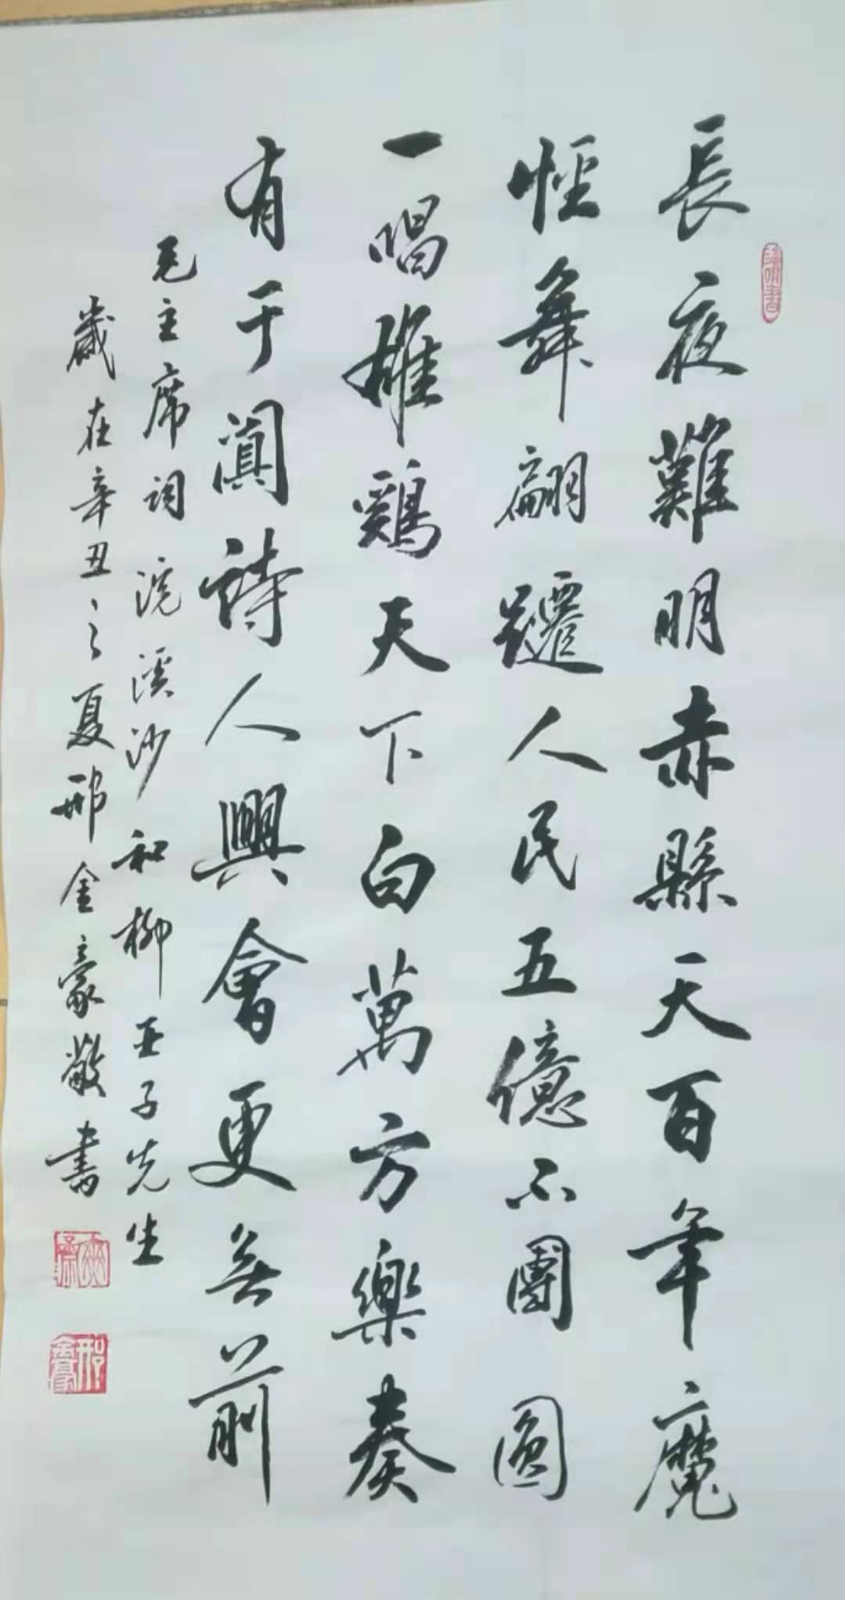 長夜難明赤縣天百年魔
怪舞翩躚人民五億不團圓
一唱雄鷄天下白萬方樂奏
有于闐詩人興會更無前
毛主席詞浣溪沙和柳亞子先生
歲在辛丑之夏邢金豪敬書